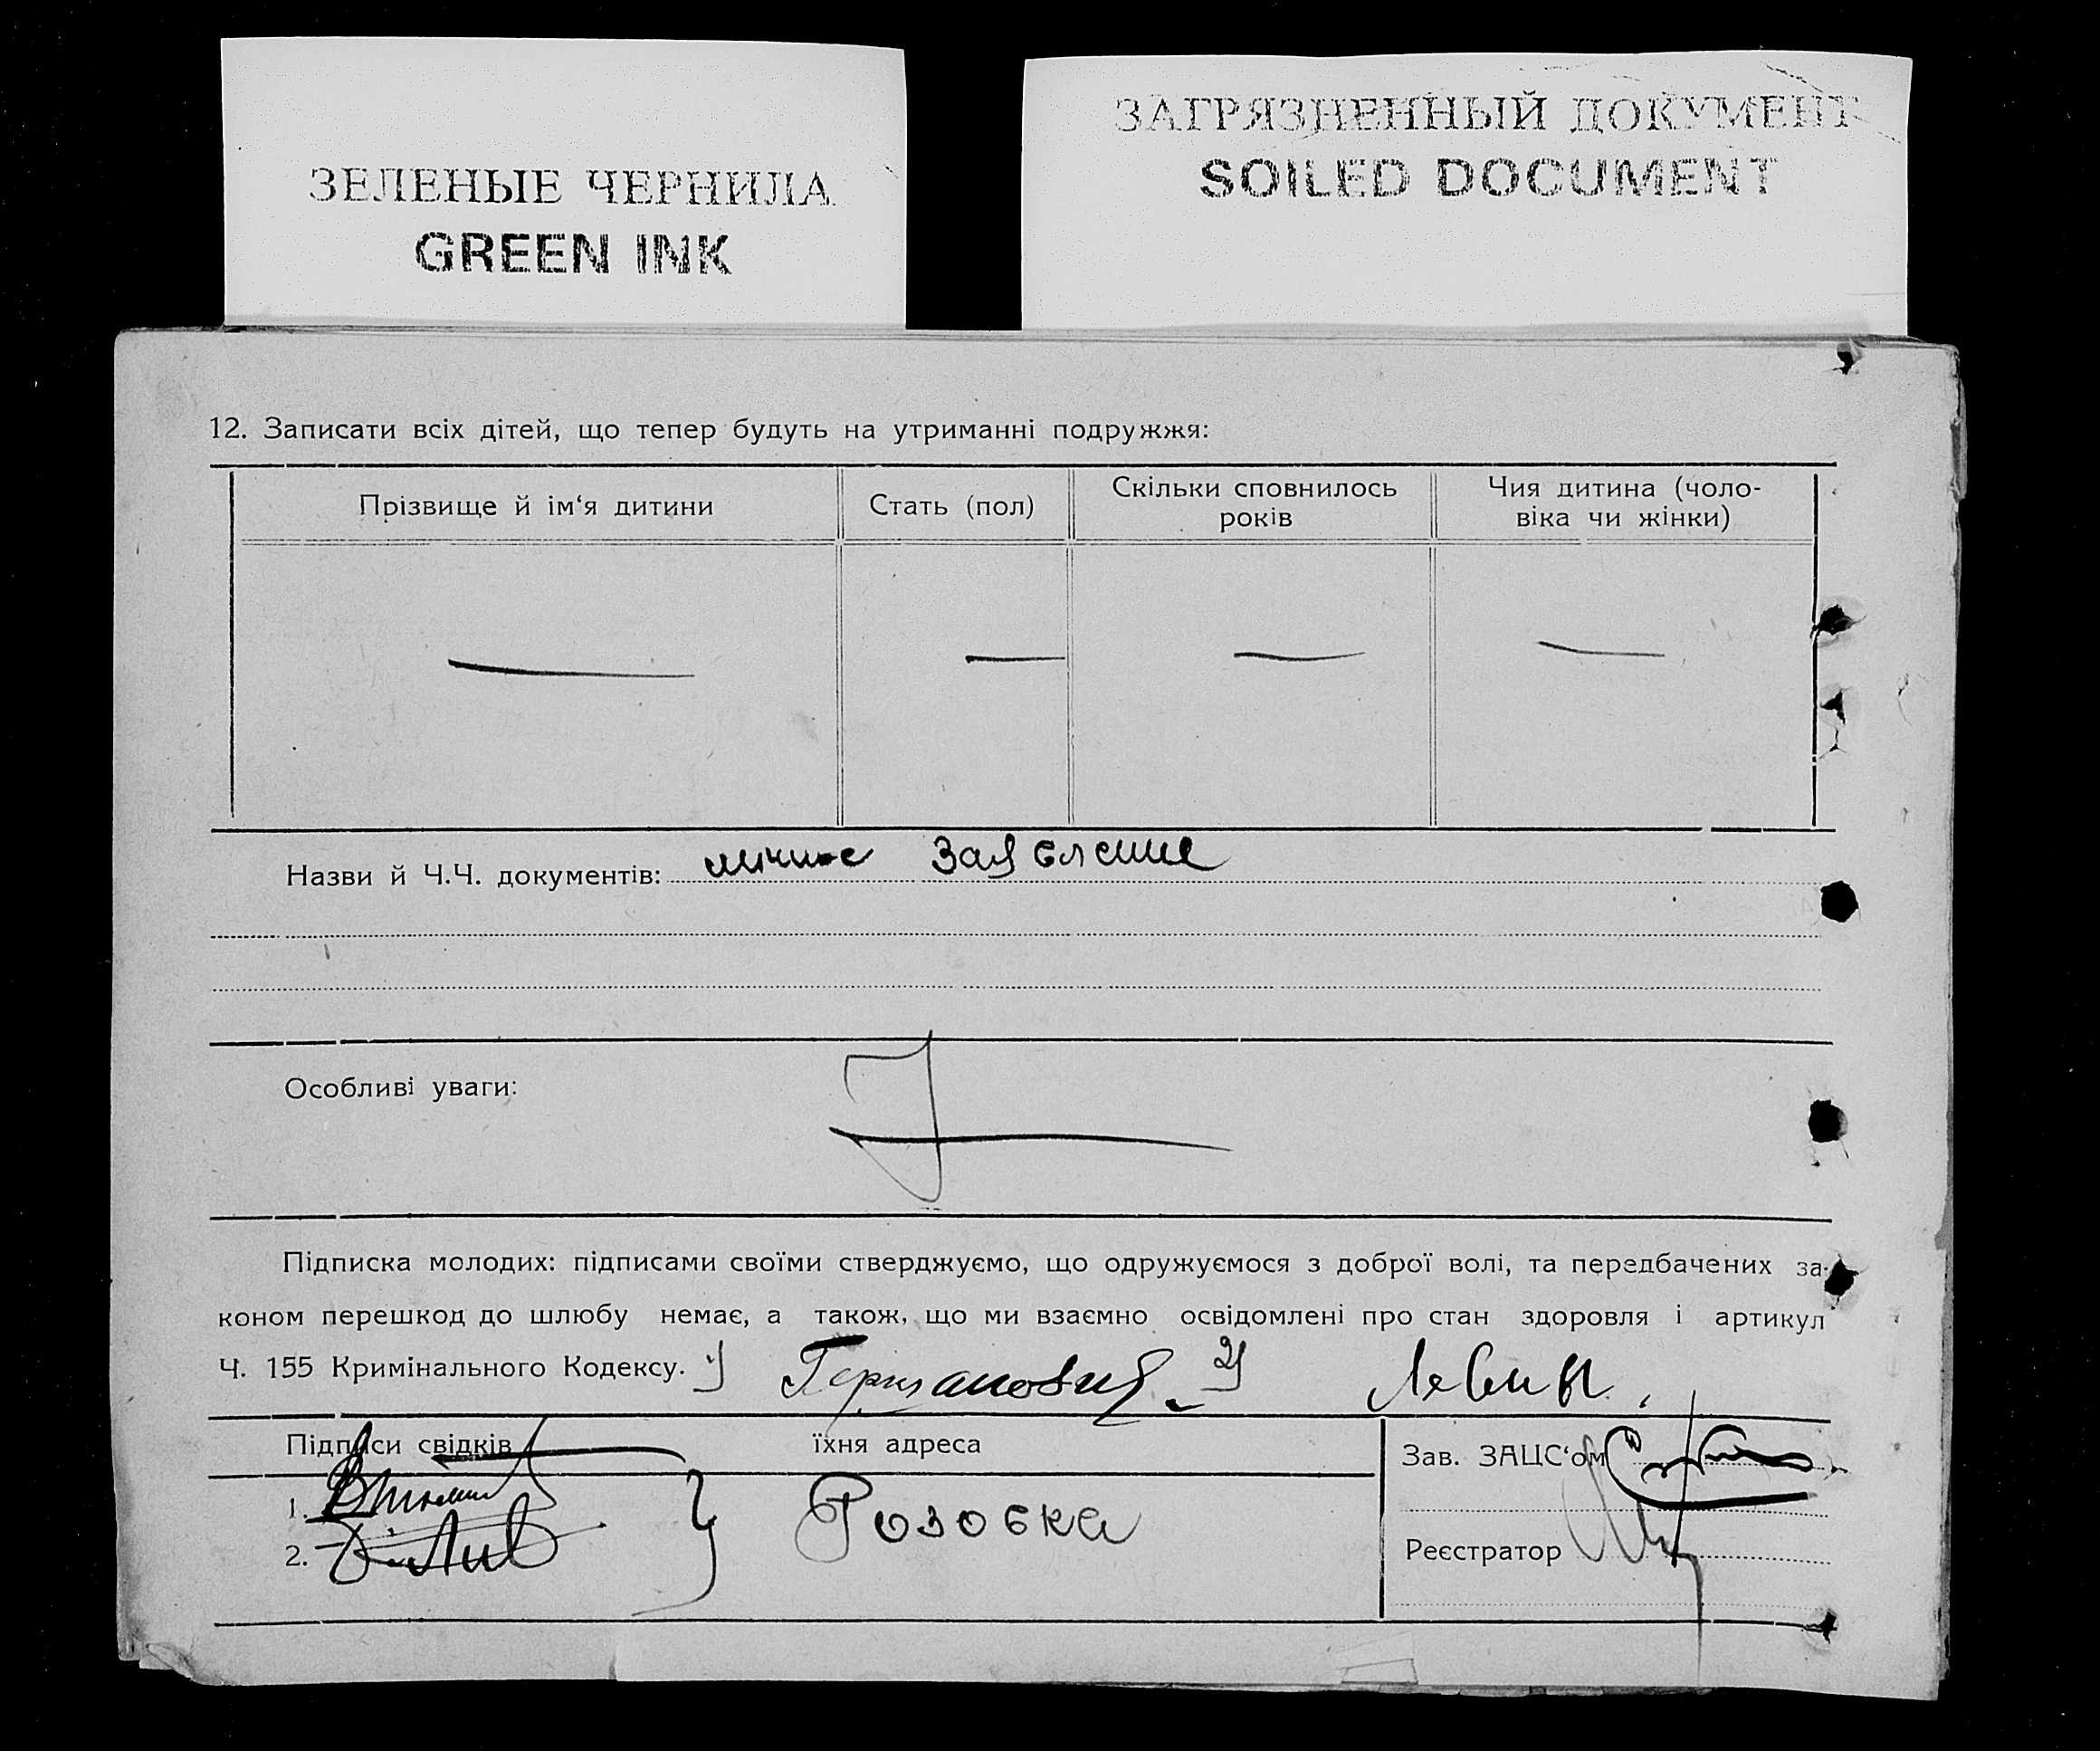 ЗЕЛЕНЫЕ ЧЕРНИЛА
GREEN INK
ЗАГРЯЗНЕННЫЙ ДОКУМЕНТ
SOILED DOCUMENT
12. Записати всіх дітей, що тепер будуть на утриманні подружжя:
Прізвище й ім‘я дитини
Стать (пол)
Скільки сповнилось
років
Чия дитина (чоло-
віка чи жінки)
Назви й Ч.Ч. документів: личное заявление
Особливі уваги:
Підписка молодих: підписами своїми стверджуємо, що одружуємося з доброї волі, та передбачених за-
коном перешкод до шлюбу немає, а також, що ми взаємно освідомлені про стан здоровля і артикул
Ч. 155 Кримінального Кодексу. 1) 2) Левин
Підписи свідків
їхня адреса
Зав. ЗАЦС‘ом
1.
2.
Розовка
Реєстратор